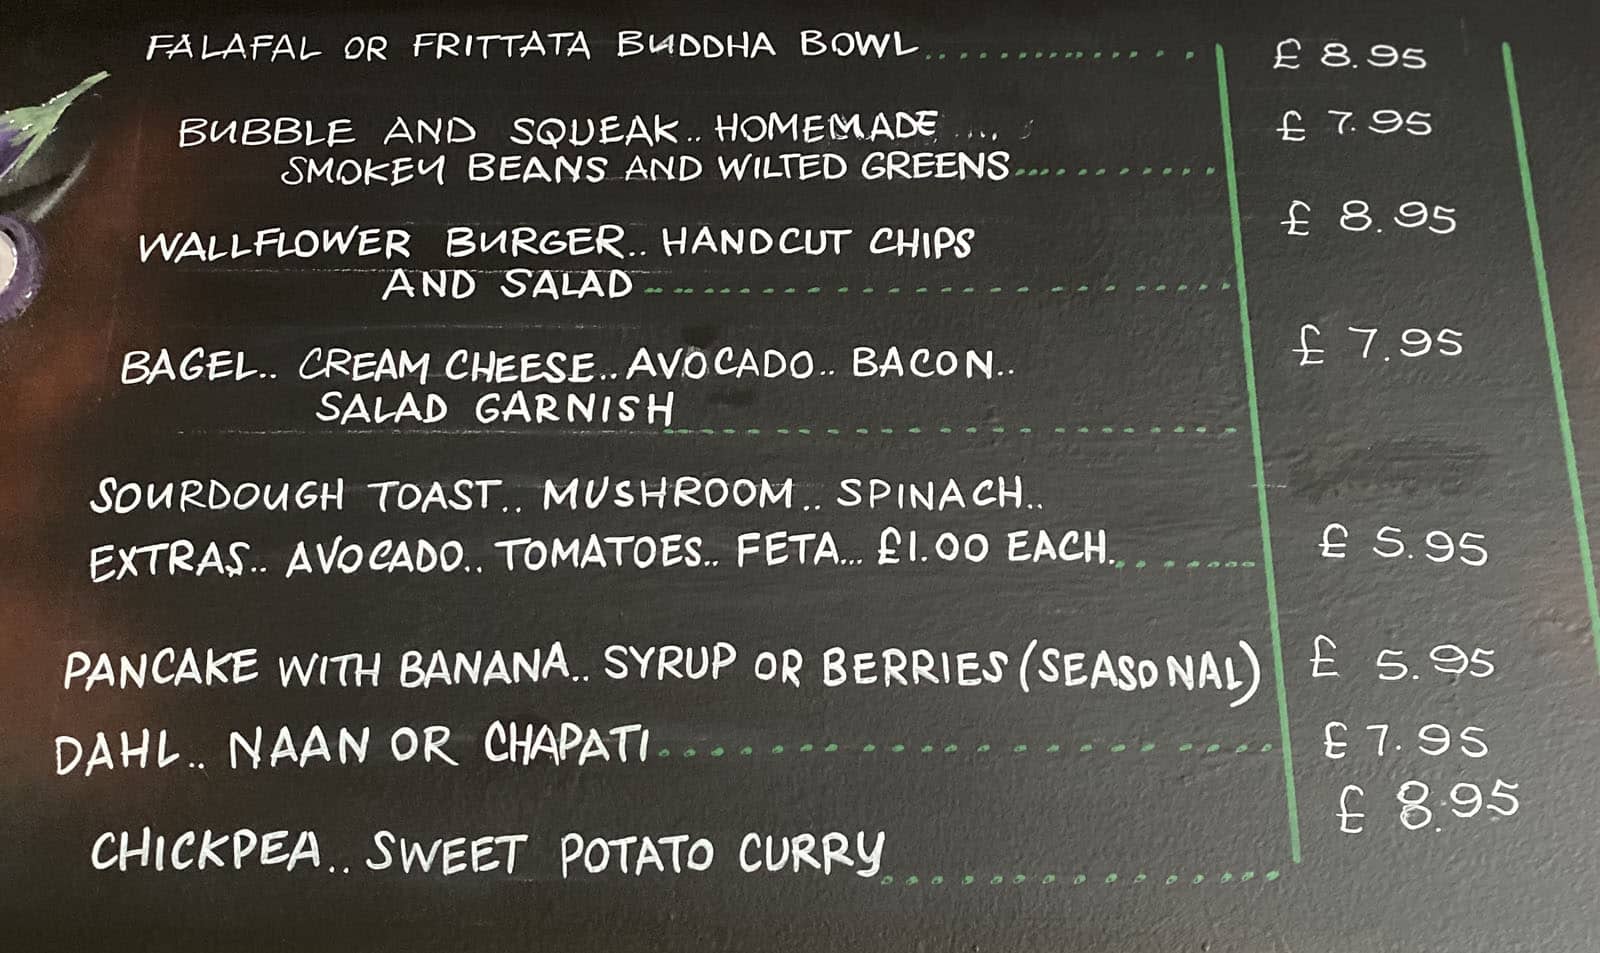 FALAFAL OR FRITTATA BUDDHA BOWL.............. £ 8.95
BUBBLE AND SQUEAK.. HOMEMADE .... £ 7.95
SMOKEY BEANS AND WILTED GREENS..............
WALLFLOWER BURGER.. HANDCUT CHIPS £ 8.95
AND SALAD..............................
BAGEL.. CREAM CHEESE.. AVOCADO.. BACON.. £ 7.95
SALAD GARNISH..............................
SOURDOUGH TOAST.. MUSHROOM.. SPINACH..
EXTRAS.. AVOCADO.. TOMATOES.. FETA... £1.00 EACH........... £ 5.95
PANCAKE WITH BANANA.. SYRUP OR BERRIES (SEASONAL) £ 5.95
DAHL.. NAAN OR CHAPATI........................ £ 7.95
CHICKPEA.. SWEET POTATO CURRY................. £ 8.95